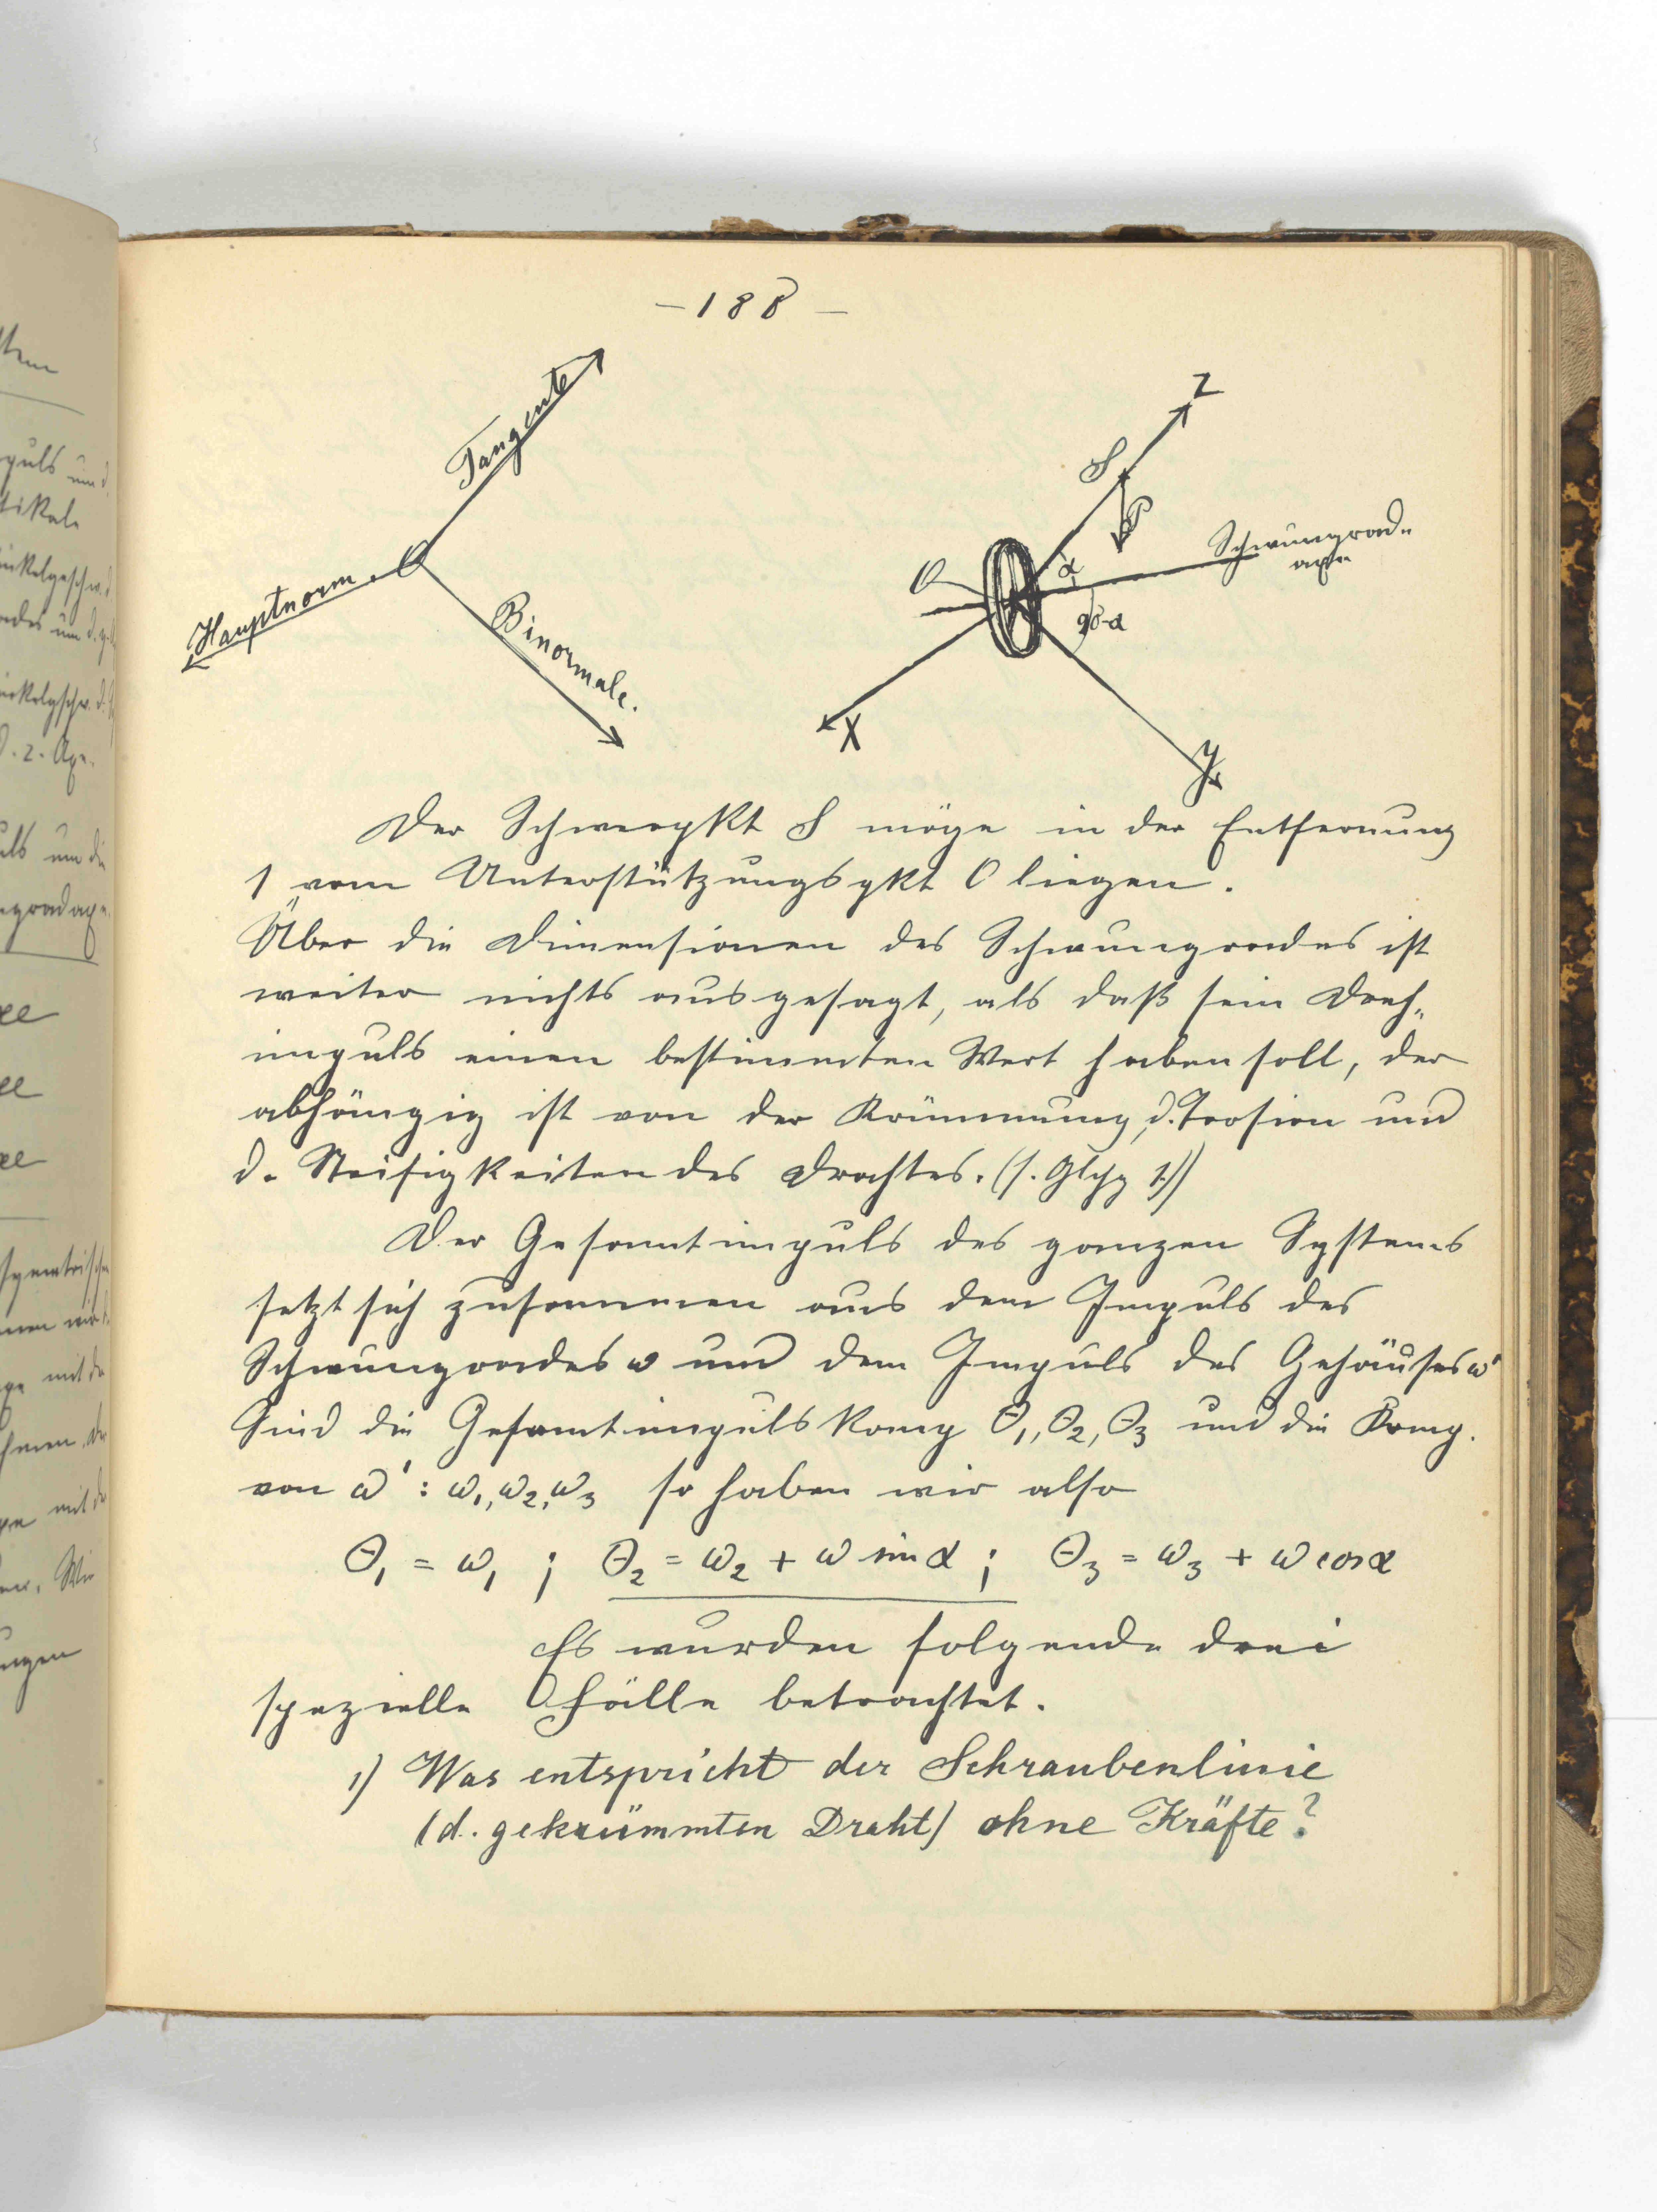 – 188 –
Tangente
O
Hauptnorm.
Binormale.
Z
S
P
Schwungrad-
axe
α
O
90-α
X
Y
Der Schwerpkt S möge in der Entfernung
1 vom Unterstützungspkt O liegen.
Über die Dimensionen des Schwungrades ist
weiter nichts ausgesagt, als daß sein Dreh-
impuls einen bestimmten Wert haben soll, der
abhängig ist von der Krümmung, d. Torsion und
d. Steifigkeiten des Drahtes. (s. Glchg 1))
Der Gesamtimpuls des ganzen Systems
setzt sich zusammen aus dem Impuls des
Schwungrades ω und dem Impuls des Gehäuses ω'
Sind die Gesamtimpulskomp Θ₁, Θ₂, Θ₃ und die Komp.
von ω' : ω₁, ω₂, ω₃ so haben wir also
Θ₁ = ω₁ ; Θ₂ = ω₂ + ω sin α ; Θ₃ = ω₃ + ω cos α
Es wurden folgende drei
spezielle Fälle betrachtet.
1) Was entspricht der Schraubenlinie
(d. gekrümmten Draht) ohne Kräfte?